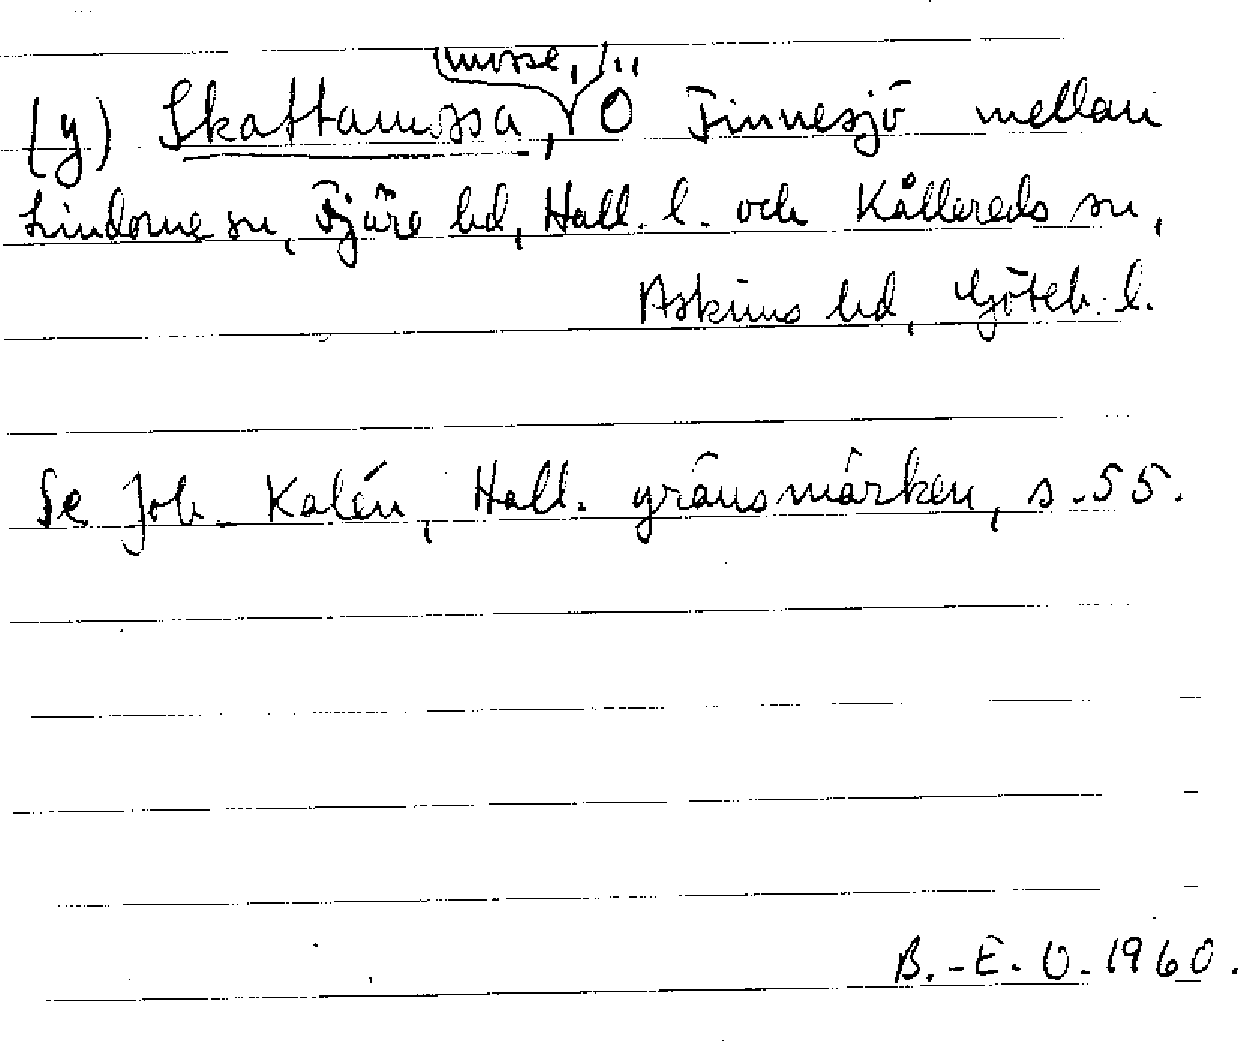 (mosse,)
(y) Skattamossa, Ö Finnesjö mellan
Lindome sn, Fjäre hd, Hall. l. och Kållereds sn,
Askims hd, Göteb. l.
Se Joh. Kalén, Hall. gränsmärken, s. 55.
B.-E. O. 1960.